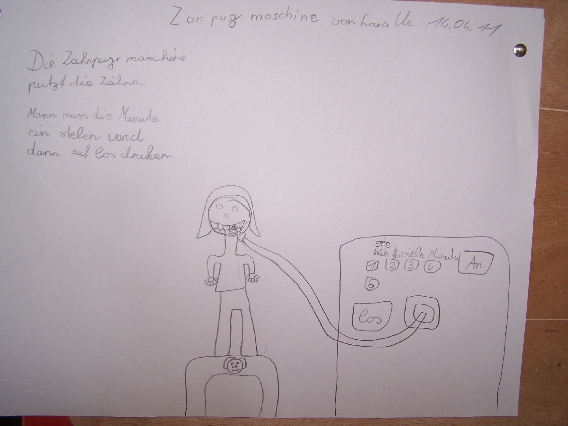 Zan puz maschine von 14.04.11
Die Zahnpuz maschine
putzt die Zähne.
Mann muss die Minute
ein stelen und
dann auf los drüken.
Wie fiele Minute
1 2 3 4 An
5
los